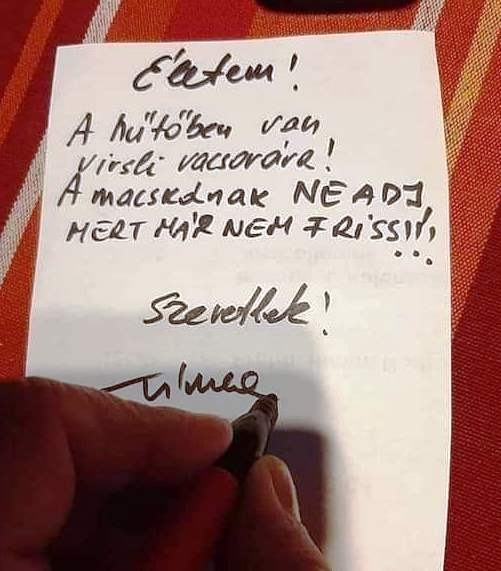 Életem!
A hűtőben van
virsli vacsorára!
A macskának NE ADJ,
MERT MÁR NEM FRISS!!!
Szeretlek!
Tímea